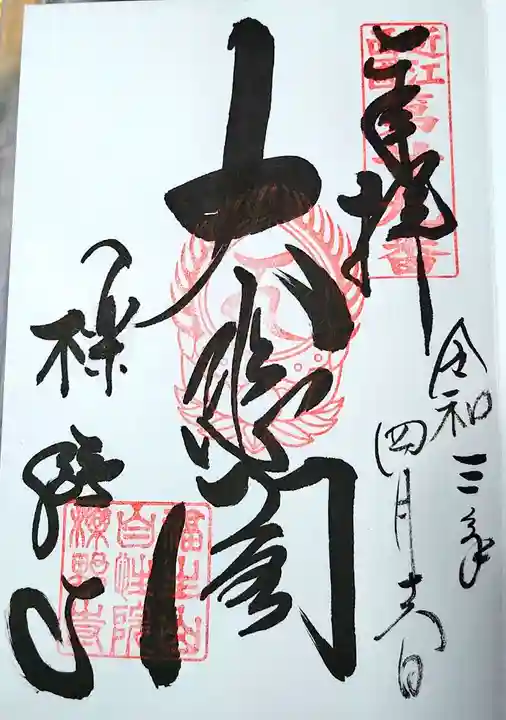 奉拝
近江
西国
令和三年
四月十六日
大悲閣
櫟野寺
福生山
自性院
櫟野寺